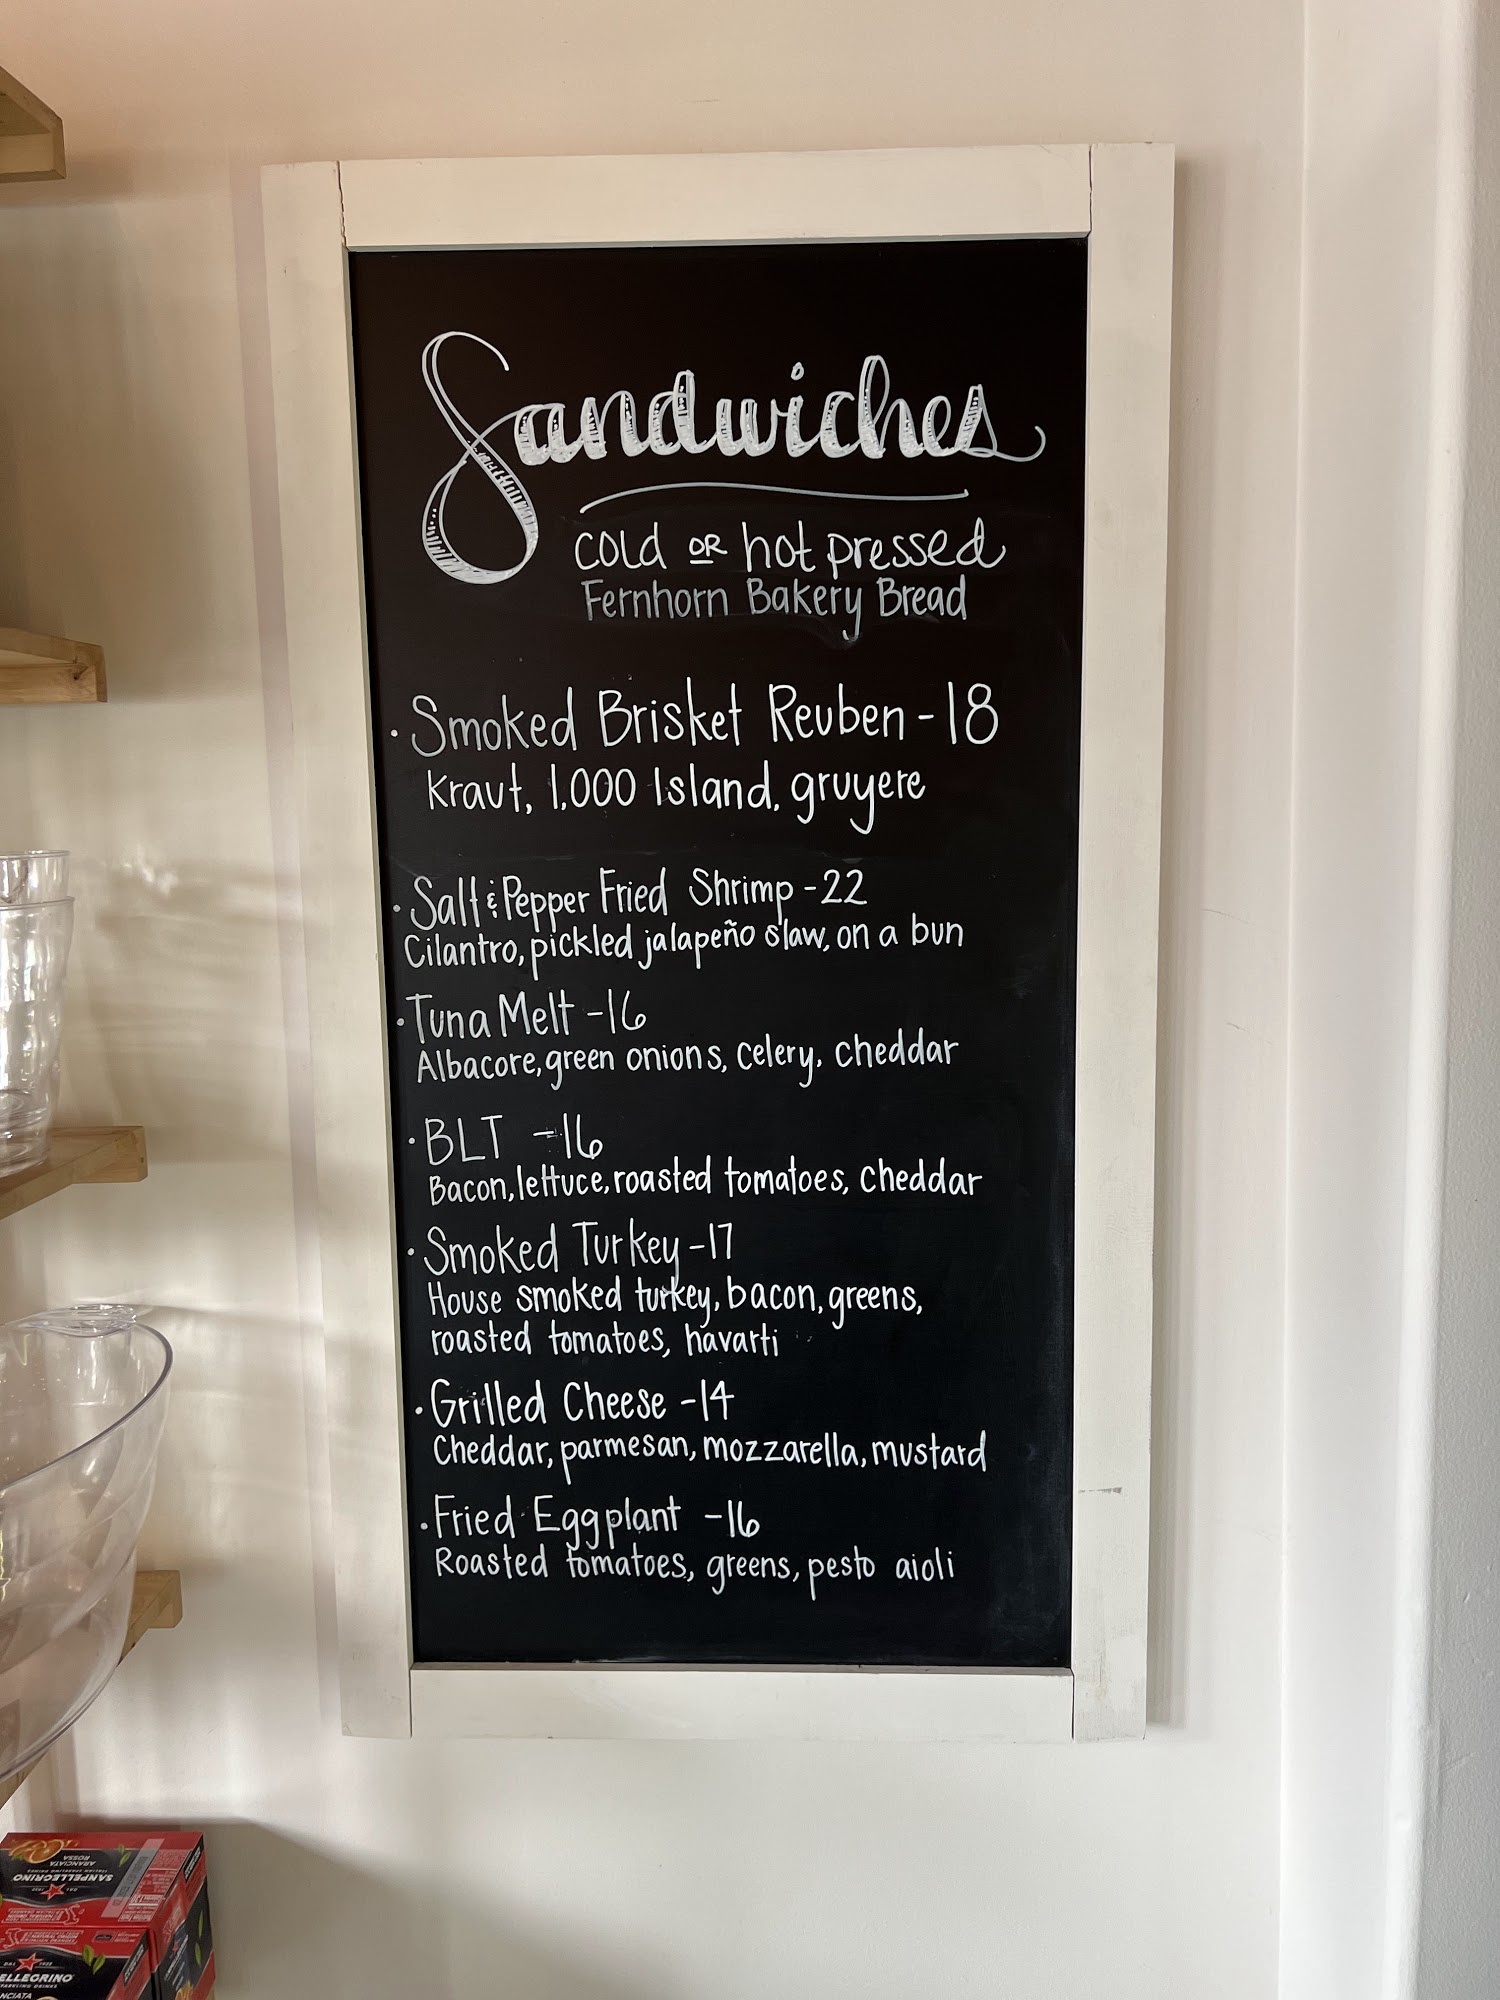 Sandwiches
cold OR hot pressed
Fernhorn Bakery Bread
· Smoked Brisket Reuben - 18
Kraut, 1,000 Island, gruyere
· Salt & Pepper Fried Shrimp - 22
Cilantro, pickled jalapeño slaw, on a bun
· Tuna Melt - 16
Albacore, green onions, celery, cheddar
· BLT - 16
Bacon, lettuce, roasted tomatoes, cheddar
· Smoked Turkey - 17
House smoked turkey, bacon, greens,
roasted tomatoes, havarti
· Grilled Cheese - 14
Cheddar, parmesan, mozzarella, mustard
· Fried Eggplant - 16
Roasted tomatoes, greens, pesto aioli
SANPELLEGRINO
ITALIAN SPARKLING DRINKS
ARANCIATA
ROSSA
ELLEGRINO
NCIATA